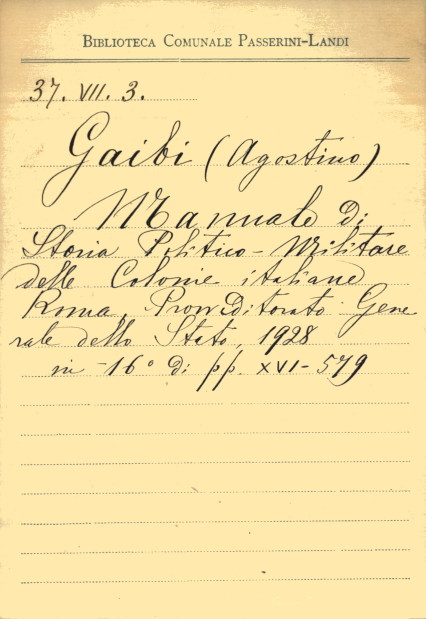 BIBLIOTECA COMUNALE PASSERINI-LANDI
37. VII. 3.
Gaibi (Agostino)
Manuale di
Storia Politico-Militare
delle Colonie italiane
Roma, Provveditorato Gene
rale dello Stato, 1928
in -16° di pp. XVI-579